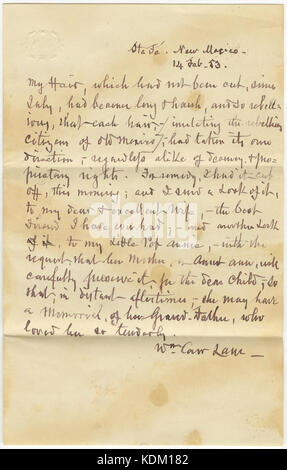 Sta Fé. New Mexico -
14 Feb. 53.
My Hair, which had not been cut, since
July, had become long & harsh, and so rebell-
ious, that each hair, - imitating the rebellious
citizens of old Mexico, - had taken its own
direction, - regardless alike of decency, & pro-
prietary rights. In remedy, I had it cut
off, this morning; and I send a Lock of it,
to my dear & excellent wife, - the best
Friend I have ever had, - and another Lock
of it, to my little Pet Annie, - with the
request that her Mother, or Aunt Ann, will
carefully preserve it, for the dear Child; so
that, in distant aftertimes, she may have
a Memorial, of her Grand-Father, who
loved her so tenderly.
Wm Carr Lane -
alamy
Image ID: KDM182
www.alamy.com